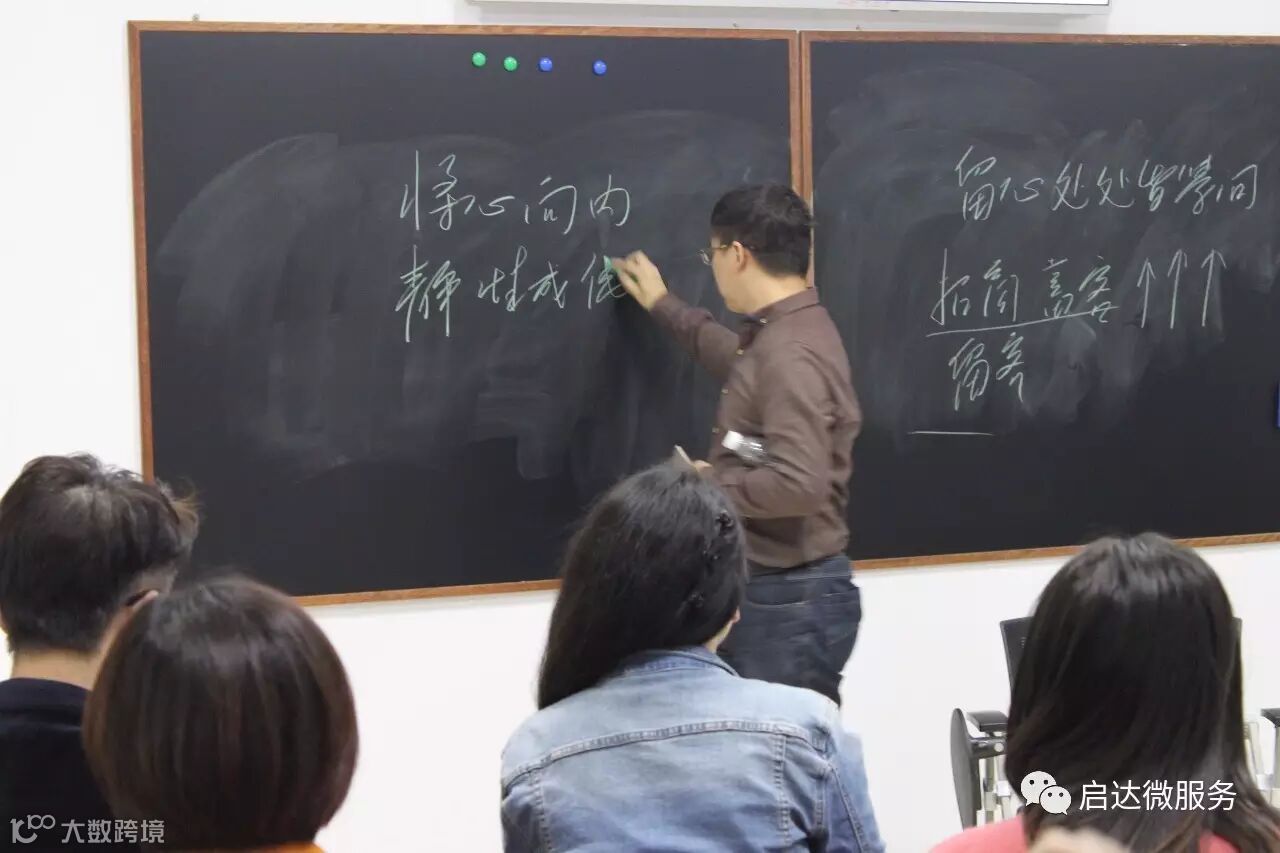 心向内
静性成
留心处处皆学问
招商高客↑↑↑
留客
启达微服务
10100 大数跨境